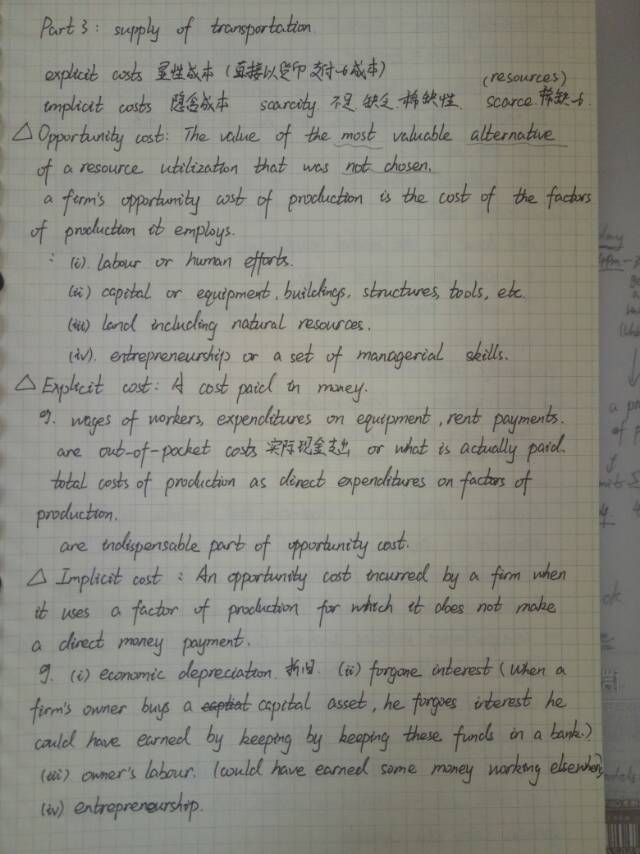 Part 3: supply of transportation
explicit costs 显性成本 (直接以货币支付的成本) (resources)
implicit costs 隐含成本 scarcity 不足 缺乏 稀缺性 scarce 稀缺的
△ Opportunity cost: The value of the most valuable alternative
of a resource utilization that was not chosen.
a firm's opportunity cost of production is the cost of the factors
of production it employs.
: (i). labour or human efforts.
(ii) capital or equipment, buildings, structures, tools, etc.
(iii) land including natural resources.
(iv). entrepreneurship or a set of managerial skills.
△ Explicit cost: A cost paid in money.
g. wages of workers, expenditures on equipment, rent payments.
are out-of-pocket costs 实际现金支出 or what is actually paid.
total costs of production as direct expenditures on factors of
production.
are indispensable part of opportunity cost.
△ Implicit cost: An opportunity cost incurred by a firm when
it uses a factor of production for which it does not make
a direct money payment.
g. (i) economic depreciation 折旧. (ii) forgone interest (when a
firm's owner buys a captial capital asset, he forgoes interest he
could have earned by keeping by keeping these funds in a bank.)
(iii) owner's labour. (could have earned some money working elsewhere)
(iv) entrepreneurship.